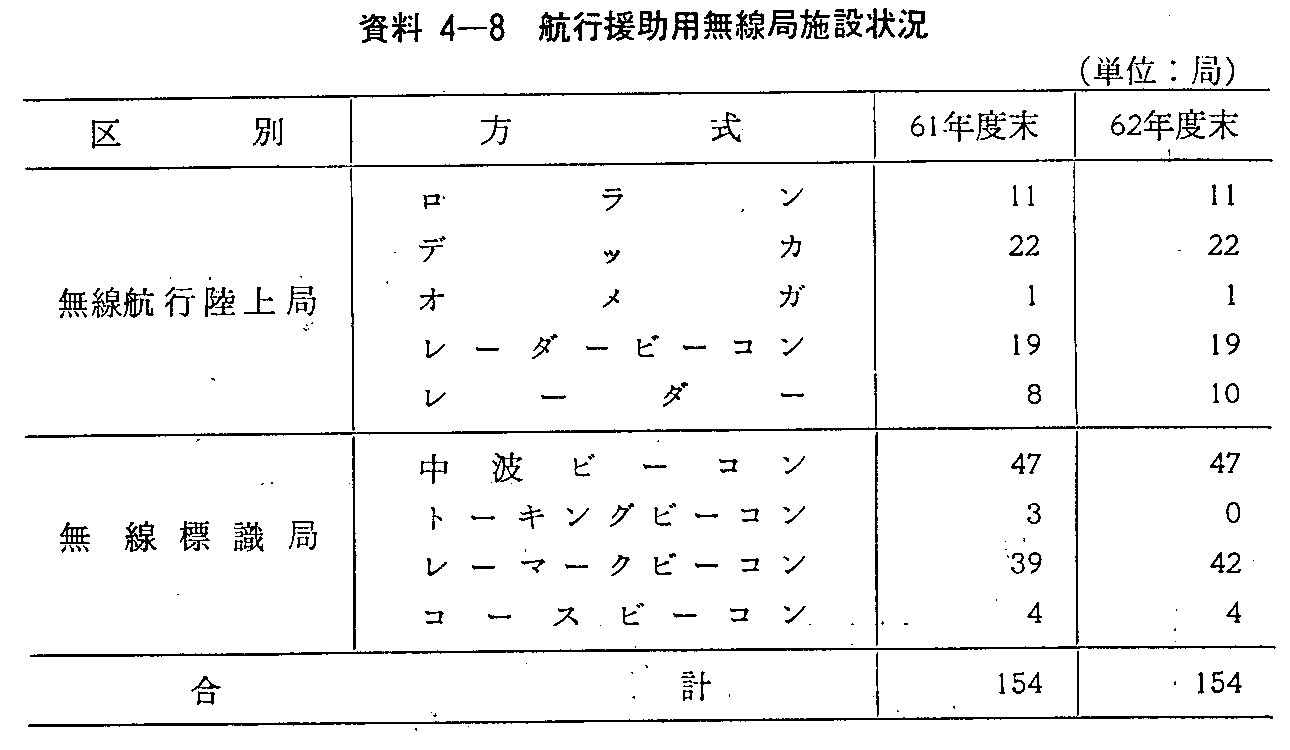 資料 4—8 航行援助用無線局施設状況
(単位：局)
区別 方式 61年度末 62年度末
無線航行陸上局 ロラン 11 11
デッカ 22 22
オメガ 1 1
レーダービーコン 19 19
レーダー 8 10
無線標識局 中波ビーコン 47 47
トーキングビーコン 3 0
レーマークビーコン 39 42
コースビーコン 4 4
合計 154 154